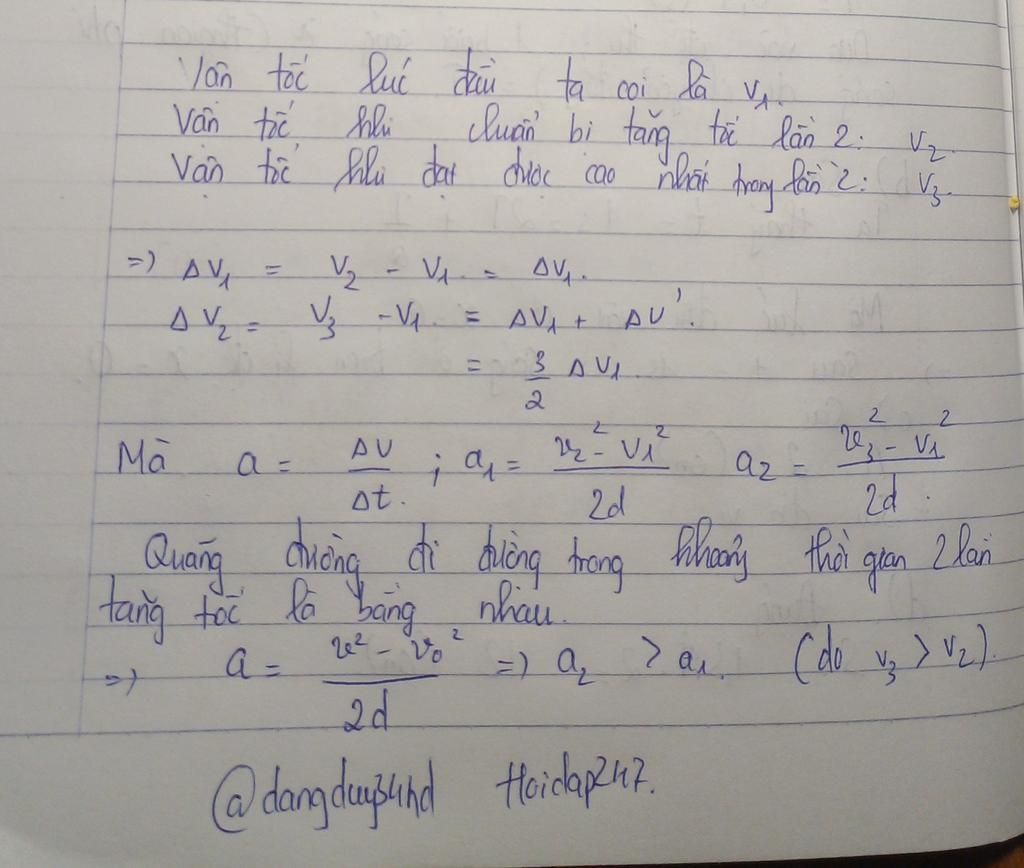 Vận tốc lúc đầu ta coi là v₁.
Vận tốc khi chuẩn bị tăng tốc lần 2: v₂.
Vận tốc khi đạt được cao nhất trong lần 2: v₃.
=> Δv₁ = v₂ - v₁ = Δv₁.
Δv₂ = v₃ - v₁ = Δv₁ + Δv'.
= 3/2 Δv₁.
Mà a = Δv/Δt. ; a₁ = (v₂² - v₁²)/2d a₂ = (v₃² - v₁²)/2d.
Quãng đường đi đường trong khoảng thời gian 2 lần
tăng tốc là bằng nhau.
=> a = (v² - v₀²)/2d => a₂ > a₁. (do v₃ > v₂).
@dangduy34hd Hoidap247.